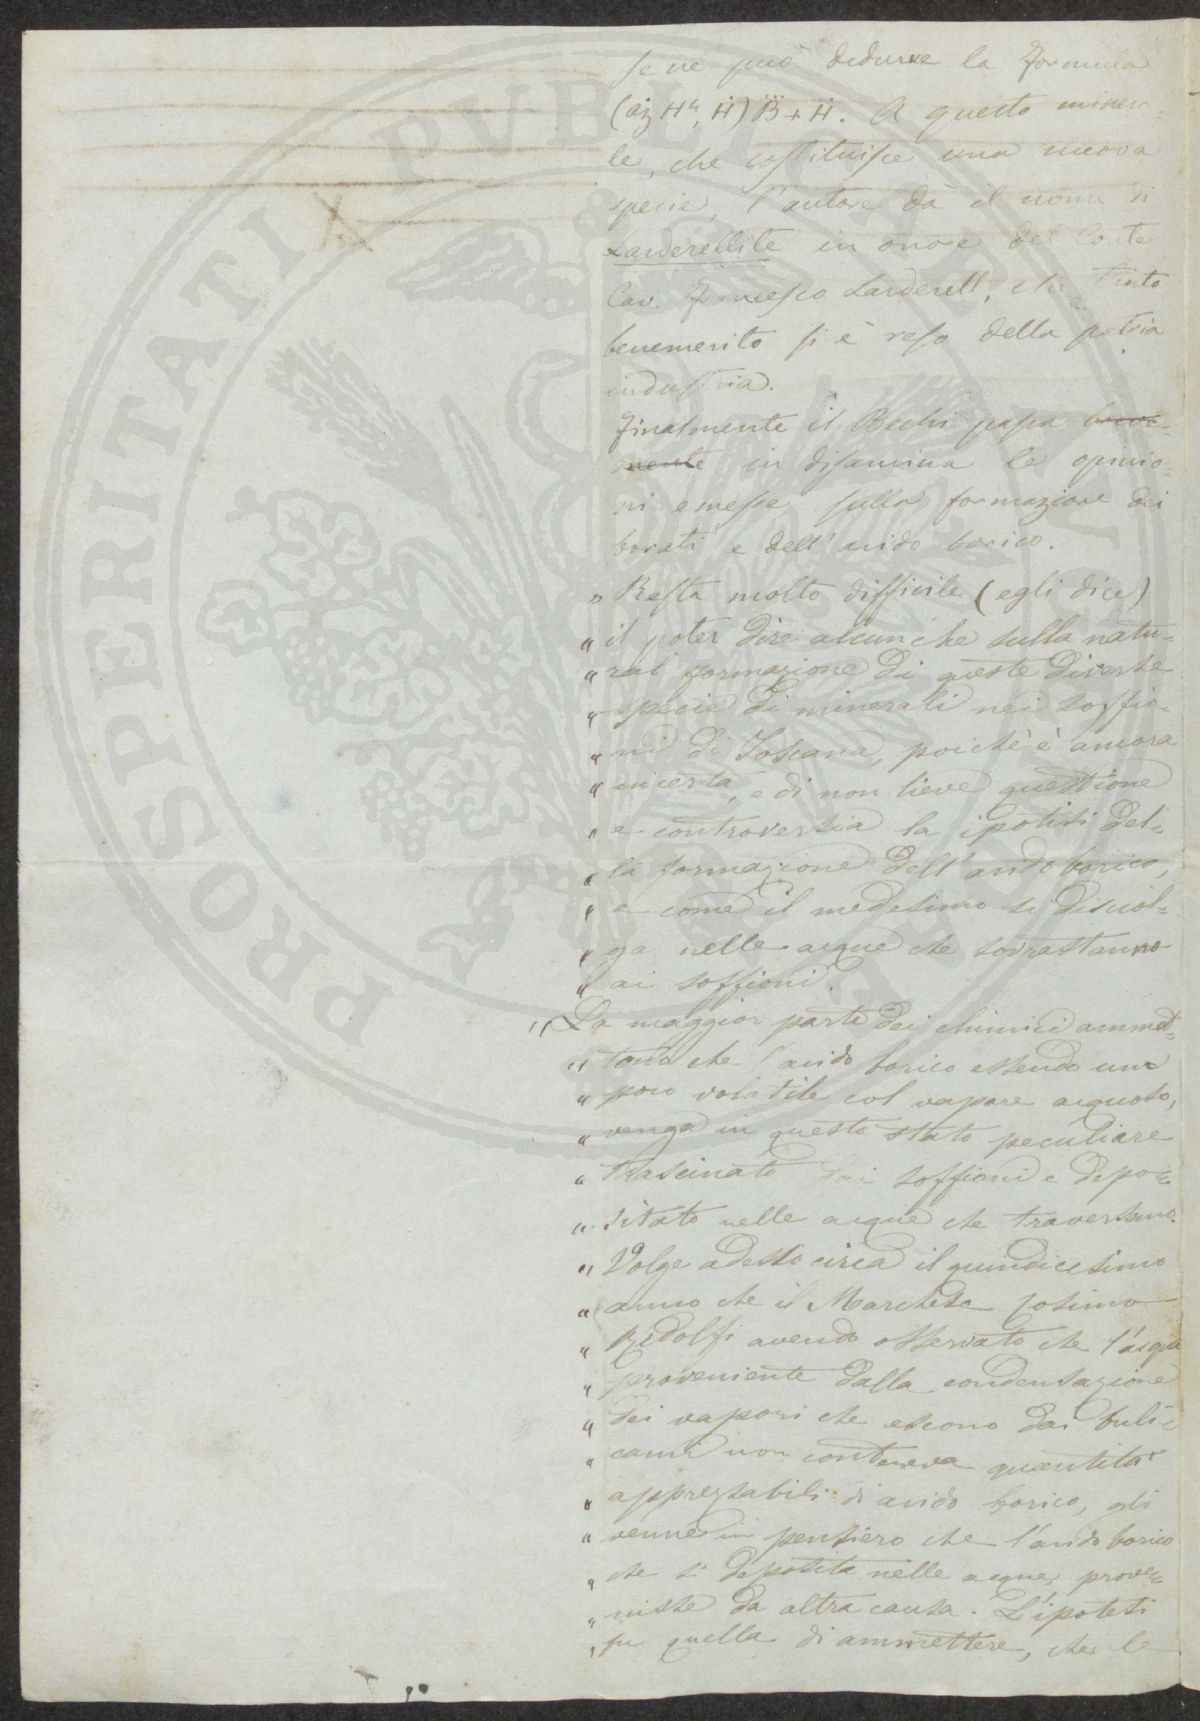 se ne può dedurre la formula
(az H⁴, Ḧ) B̈ + Ḧ. A questo minera
le, che costituisce una nuova
specie, l'autore dà il nome di
Larderellite in onore del Conte
Cav. Francesco Larderell, che tanto
benemerito si è reso della patria
industria.
Finalmente il Bechi passa breve=
mente in disamina le opinio
ni emesse sulla formazione dei
borati e dell'acido borico.
„ Resta molto difficile (egli dice)
„ il poter dire alcun che sulla natu=
„ ral formazione di queste diverse
„ specie di minerali nei soffio=
„ ni di Toscana, poichè è ancora
„ incerta, e di non lieve questione
„ e controversia la ipotisi del=
„ la formazione dell'acido borico,
„ e come il medesimo si disciol=
„ ga nelle acque che sovrastanno
„ ai soffioni.
„ La maggior parte dei chimici ammet=
„ tono che l'acido borico essendo un
„ poco volatile col vapore acquoso,
„ venga in questo stato peculiare
„ trascinato dai soffioni e depo=
„ sitato nelle acque che traversano.
„ Volge adesso circa il quindicesimo
„ anno che il Marchese Cosimo
„ Ridolfi avendo osservato che l'acqua
„ proveniente dalla condensazione
„ dei vapori che escono dai buli=
„ cami non conteneva quantità
„ apprezzabili di acido borico, gli
„ venne in pensiero che l'acido borico
„ che si deposita nelle acque, prove=
„ nisse da altra causa. L'ipotesi
„ fu quella di ammettere, che le
PROSPERITATI PVBLICAE